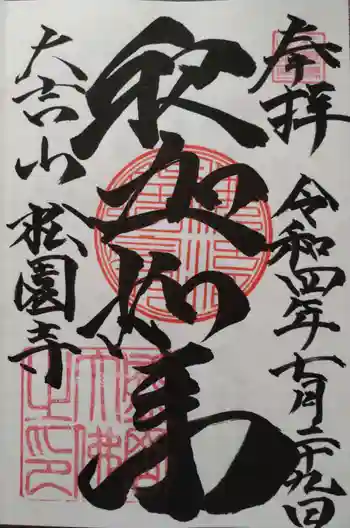 奉拝
令和四年七月二十九日
釈迦如来
大吉山
松園寺
大佛
之印